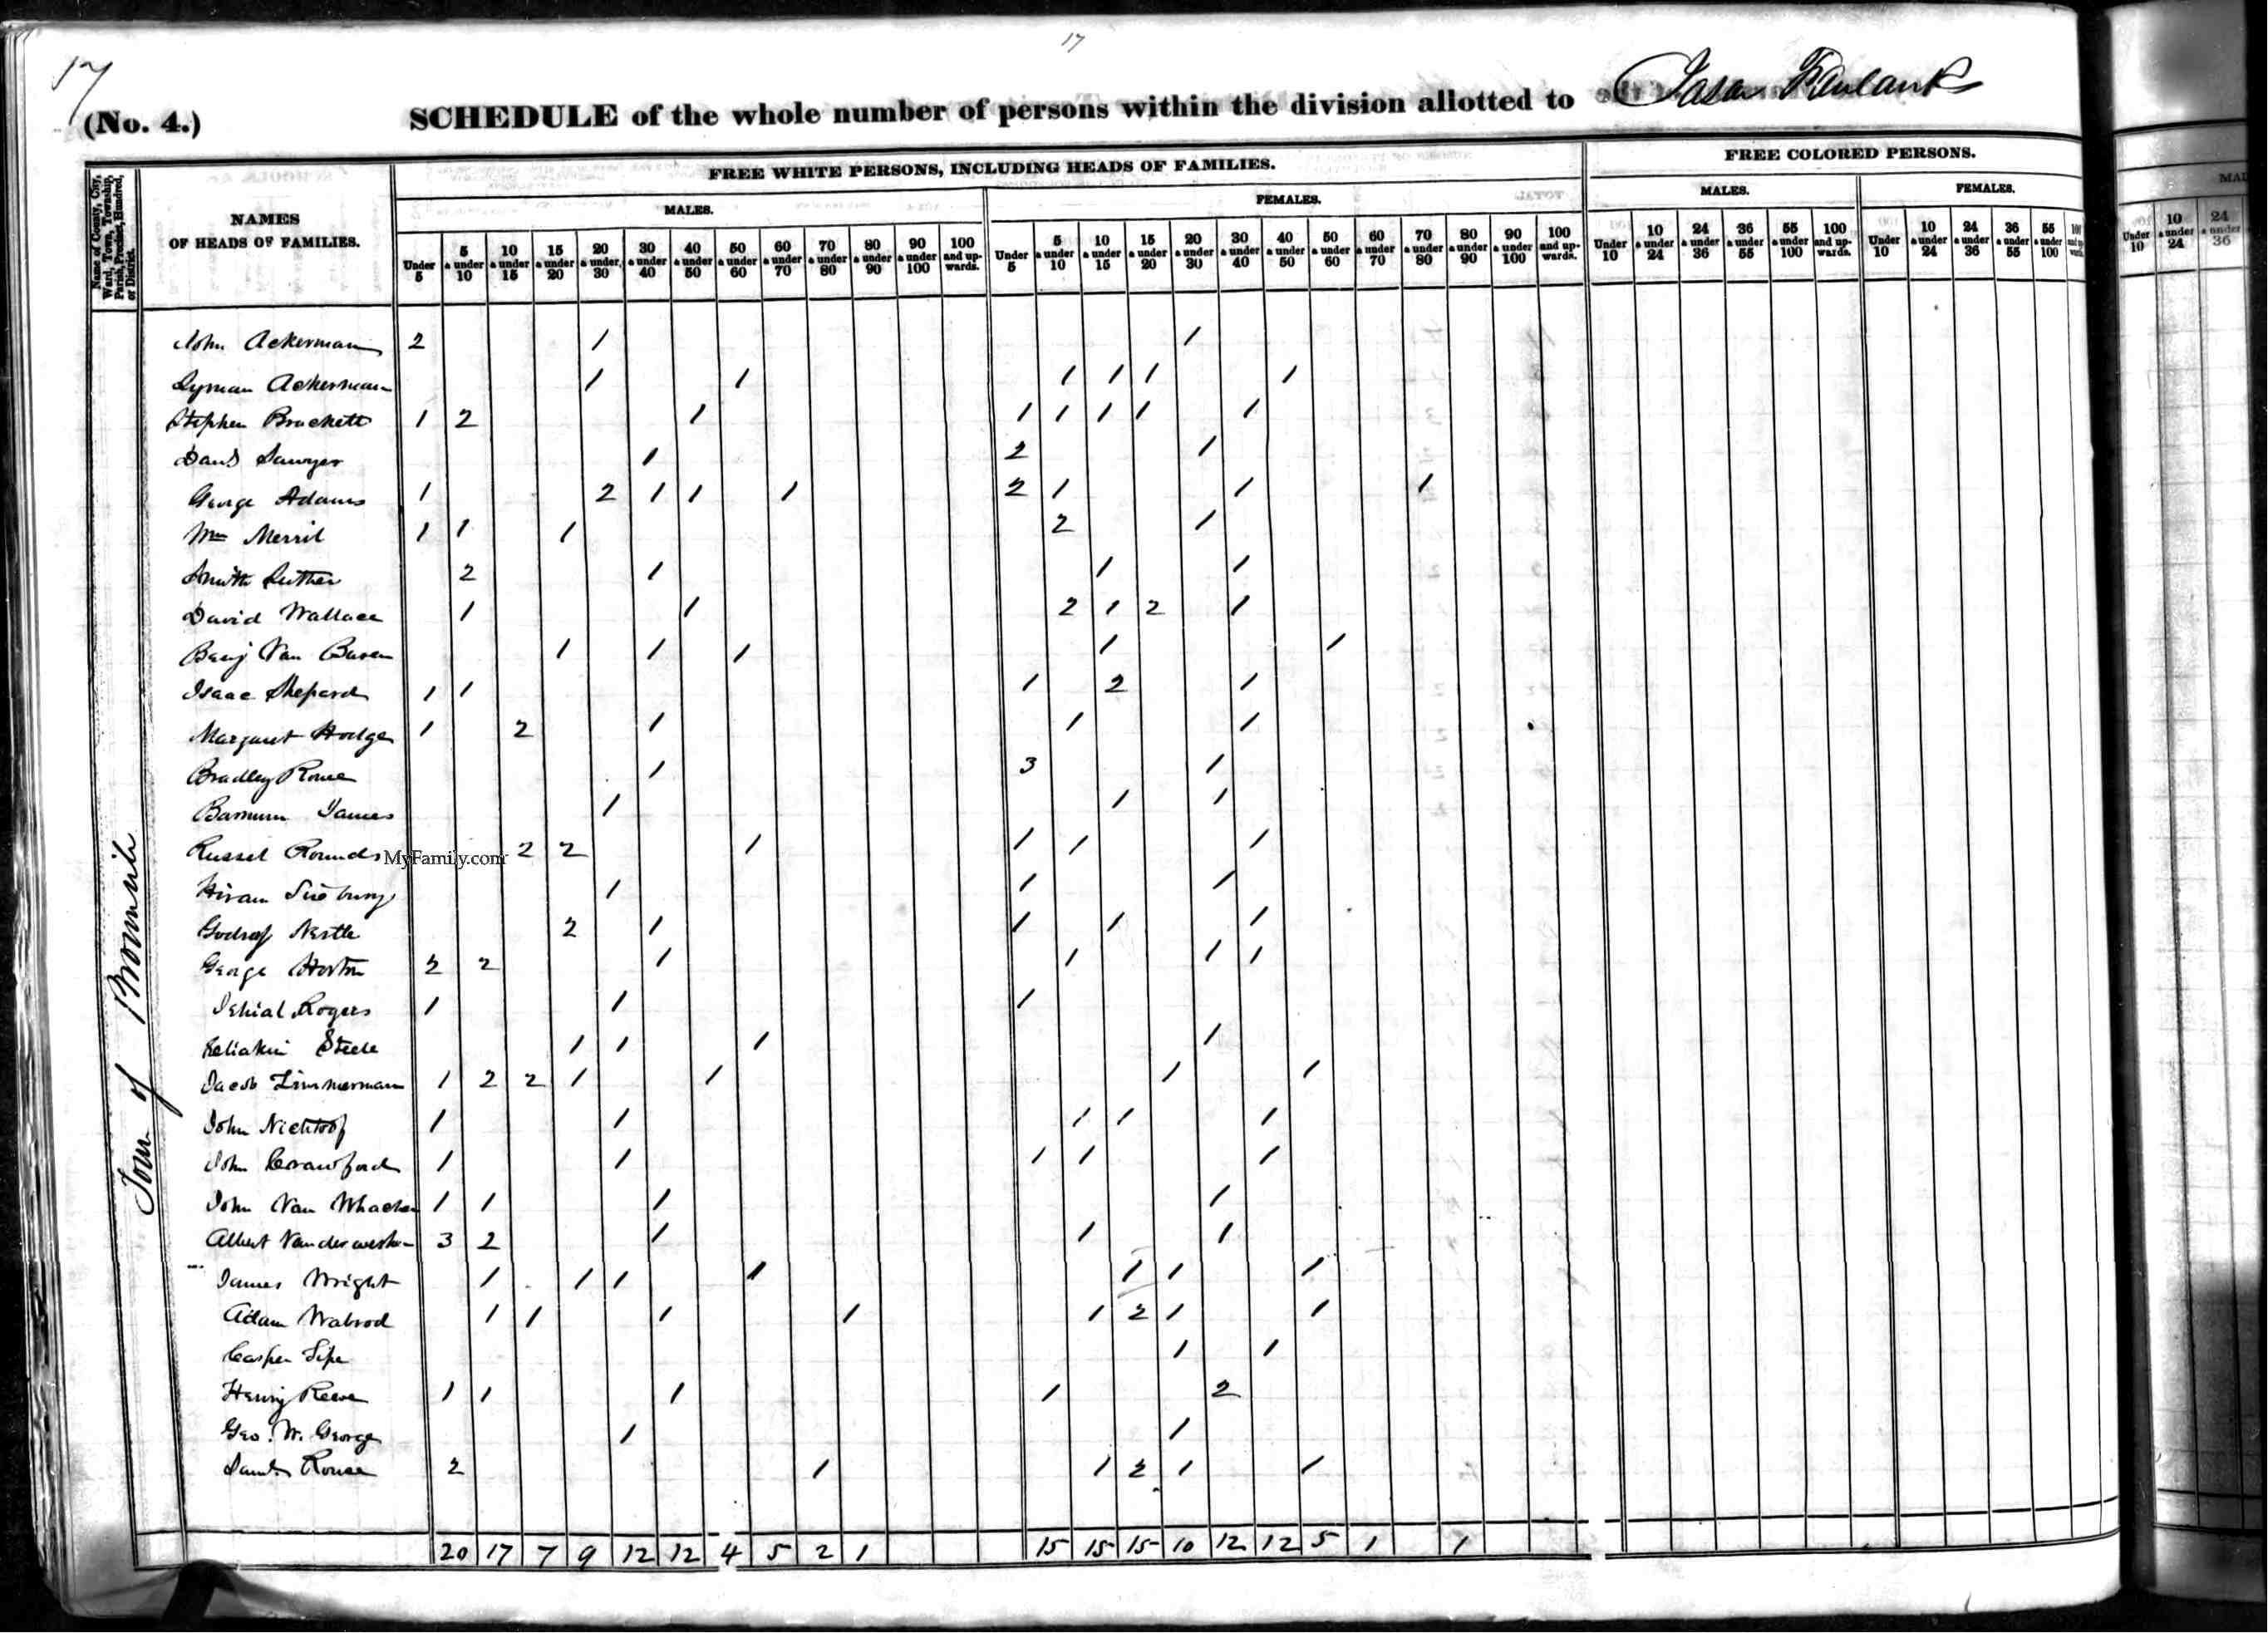 17
17
(No. 4.) SCHEDULE of the whole number of persons within the division allotted to
FREE WHITE PERSONS, INCLUDING HEADS OF FAMILIES. FREE COLORED PERSONS.
Name of County, City, Ward, Town, Township, Parish, Precinct, Hundred, or District.
NAMES OF HEADS OF FAMILIES.
MALES. FEMALES. MALES. FEMALES.
Under 5 5 & under 10 10 & under 15 15 & under 20 20 & under 30 30 & under 40 40 & under 50 50 & under 60 60 & under 70 70 & under 80 80 & under 90 90 & under 100 100 and up-wards. Under 5 5 & under 10 10 & under 15 15 & under 20 20 & under 30 30 & under 40 40 & under 50 50 & under 60 60 & under 70 70 & under 80 80 & under 90 90 & under 100 100 and up-wards. Under 10 10 & under 24 24 & under 36 36 & under 55 55 & under 100 100 and up-wards. Under 10 10 & under 24 24 & under 36 36 & under 55 55 & under 100 100 and up wards. Under 10 10 & under 24 24 & under 36
Town of
John Ackerman 2 1 1
Lyman Ackerman 1 1 1 1 1 1
Stephen Brackett 1 2 1 1 1 1 1 1
Sawyer 1 2 1
George Adams 1 2 1 1 1 2 1 1 1
Wm Merril 1 1 1 2 1
Smith Luther 2 1 1 1
David Wallace 1 1 2 1 2 1
Benj Van Buren 1 1 1 1 1
Isaac Shepard 1 1 1 2 1
Margaret Hodge 1 2 1 1 1
Bradley Rouse 1 3 1
Barnum James 1 1 1
Russel Rounds MyFamily.com 2 2 1 1 1 1
Hiram 1 1 1
Nestle 2 1 1 1 1
George Horton 2 2 1 1 1 1
Rogers 1 1 1
Eeliakim Steele 1 1 1 1
Jacob Zimmerman 1 2 2 1 1 1 1
John 1 1 1 1 1
John Crawford 1 1 1 1 1
John Van 1 1 1 1
Albert 3 2 1 1 1
James Wright 1 1 1 1 1 1 1
Adam Wabrod 1 1 1 1 1 2 1 1
Casper Sipe 1 1
Henry Reeve 1 1 1 1 2
Geo. W. George 1 1
Saml. Rouse 2 1 1 2 1 1
20 17 7 9 12 12 4 5 2 1 15 15 15 10 12 12 5 1 1